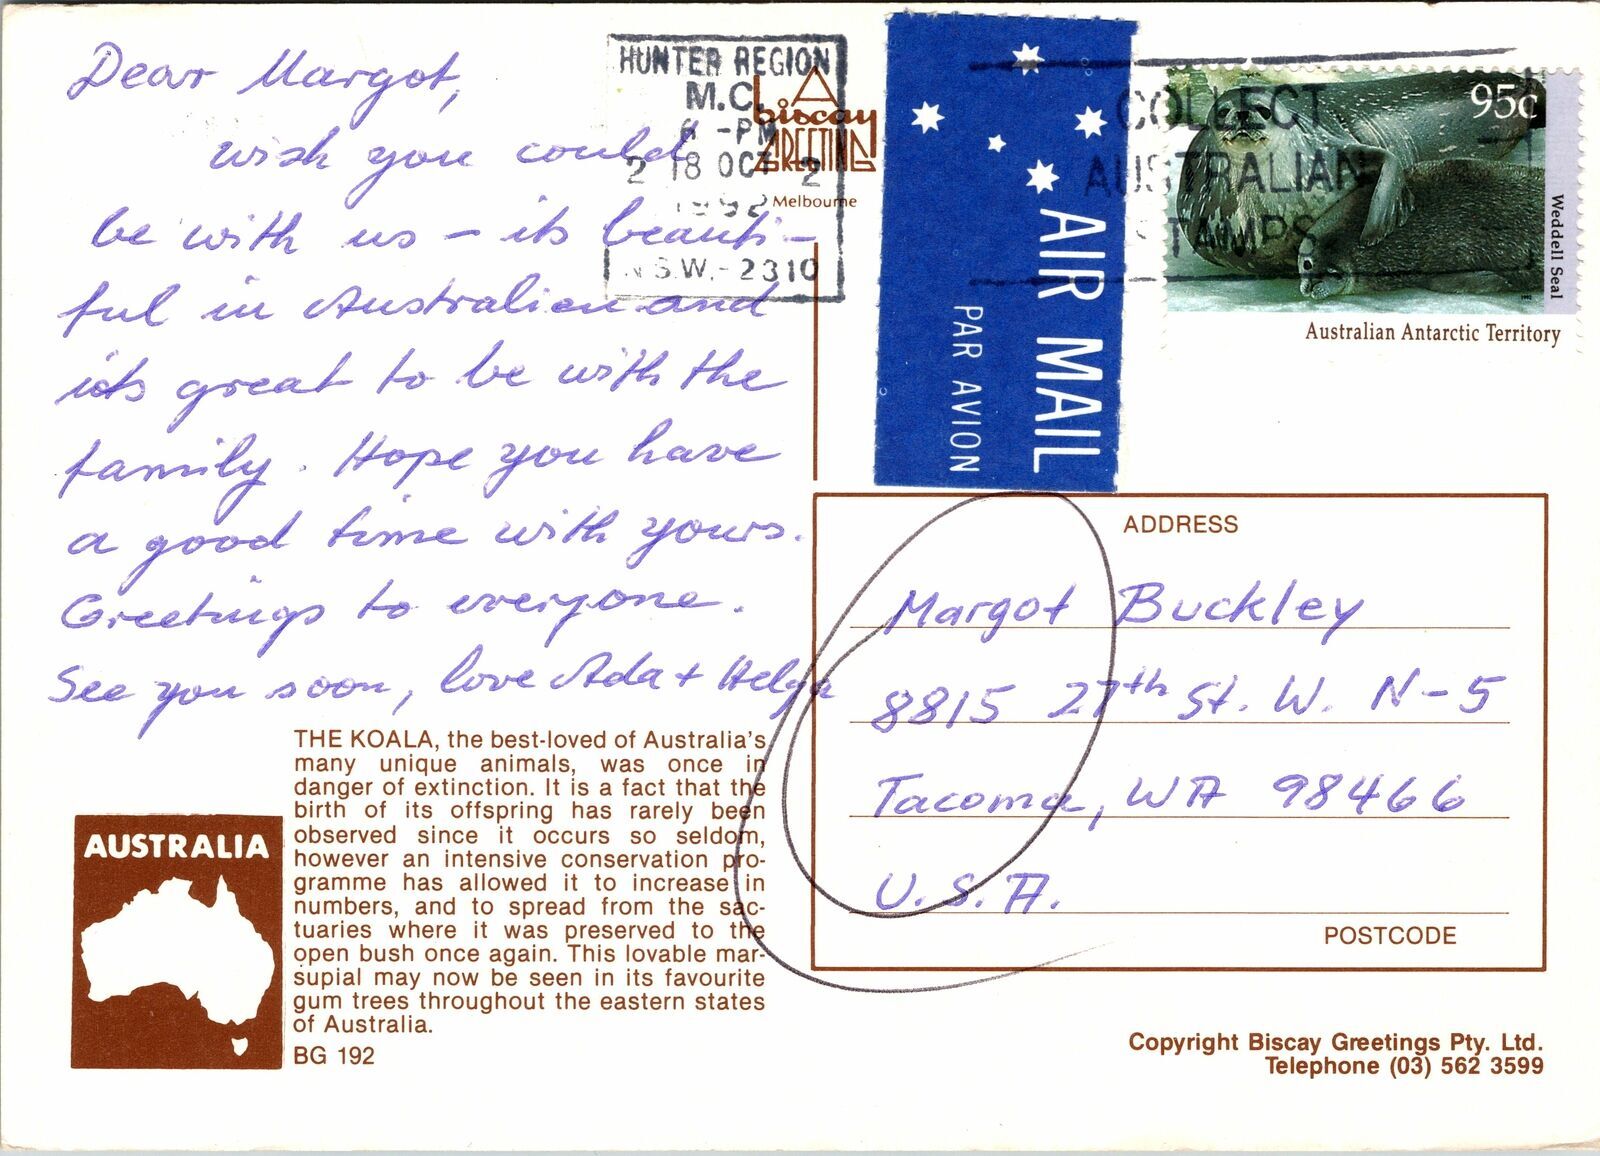 Dear Margot,
wish you could
be with us – its beauti-
ful in Australien and
its great to be with the
family. Hope you have
a good time with yours.
Greetings to everyone.
See you soon, love Ada + Helga
THE KOALA, the best-loved of Australia's
many unique animals, was once in
danger of extinction. It is a fact that the
birth of its offspring has rarely been
observed since it occurs so seldom,
however an intensive conservation pro-
gramme has allowed it to increase in
numbers, and to spread from the sac-
tuaries where it was preserved to the
open bush once again. This lovable mar-
supial may now be seen in its favourite
gum trees throughout the eastern states
of Australia.
BG 192
AUSTRALIA
HUNTER REGION
M.C.
6 -PM
2 18 OCT 2
1992
N.S.W.-2310
biscay
GREETING
Melbourne
AIR MAIL
PAR AVION
COLLECT
AUSTRALIAN
STAMPS
95c
Weddell Seal
1992
Australian Antarctic Territory
ADDRESS
Margot Buckley
8815 27th St. W. N-5
Tacoma, WA 98466
U.S.A.
POSTCODE
Copyright Biscay Greetings Pty. Ltd.
Telephone (03) 562 3599